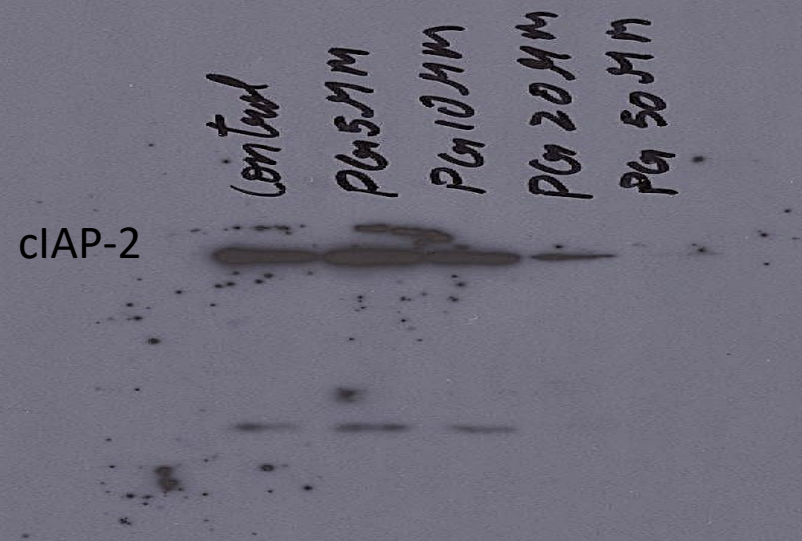 Control
PG 5 µM
PG 10 µM
PG 20 µM
PG 50 µM
cIAP-2